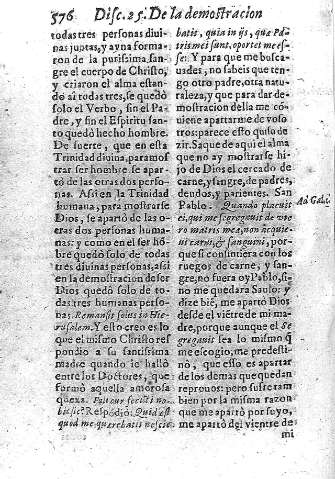 576 Disc. 25. De la demostracion
todas tres personas divi-
nas juntas, y ayna forma-
ron de la purissima san-
gre el cuerpo de Christo,
y criaron el alma estan-
do ai todas tres, se quedò
solo el Verbo, sin el Pa-
dre, y sin el Espiritu san-
to quedò hecho hombre.
De suerte, que en esta
Trinidad divina, para mos-
trar ser hombre se apar-
tò de las otras dos perso-
nas. Assi en la Trinidad
humana, para mostrarse
Dios, se apartò de las o-
tras dos personas huma-
nas: y como en el ser hõ-
bre quedò solo de todas
tres divinas personas, assi
en la demostracion de ser
Dios quedò solo de todas
tres humanas perso-
nas. Remansit solus in Hie-
rusalem. Y esto creo es lo
que el mismo Christo res-
pondio a su santissima
madre quando le hallò
entre los Doctores, que
formò aquella amorosa
quexa. Fili cur fecisti no-
bis sic? Respõdiò: Quid est
quod me quærebatis nescie-
batis, quia in ijs, quæ Pa-
tris mei sunt, oportet me es-
se? Y para que me busca-
uades, no sabeis que ten-
go otro padre, otra natu-
raleza, y que para dar de-
mostracion della me cõ-
uiene apartarme de vos-
otros: parece esto quiso de
zir. Saque de aqui el alma
que no ay mostrarse hi-
jo de Dios el cercado de
carne, y sangre, de padres,
deudos, y parientes. San
Pablo. Quando placuit
ei, qui me segregauit de vte-
ro matris meæ, non acquie-
ui carni, & sanguini, por-
que si consintiera con los
ruegos de carne, y san-
gre, no fuera oy Pablo, si-
no me quedara Saulo: y
dize biẽ, me apartò Dios
desde el viẽtre de mi ma-
dre, porque aunque el Se
gregauit sea lo mismo q̃
me escogio, me predesti-
nò, que esso es apartar
de los demas que quedan
reprouos: pero suffre tam
bien por la misma razon
que me apartò por suyo,
me apartò del vientre de
mi
Ad Gal. 1.